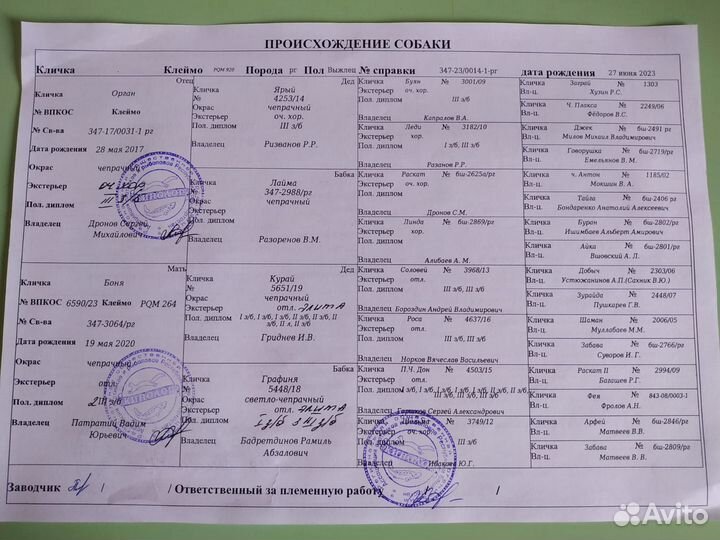 ПРОИСХОЖДЕНИЕ СОБАКИ
Кличка Клеймо PQM 920 Порода рг Пол Выжлец № справки 347-23/0014-1-рг дата рождения 27 июня 2023
Отец
Кличка Орган
№ ВПКОС Клеймо
№ Св-ва 347-17/0031-1 рг
Дата рождения 28 мая 2017
Окрас чепрачный
Экстерьер оч. хор.
Пол. диплом III з/б
Владелец Дронов Сергей
Михайлович
Дед
Кличка Ярый
№ 4253/14
Окрас чепрачный
Экстерьер оч. хор.
Пол. диплом III з/б
Владелец Ризванов Р.Р.
Бабка
Кличка Лайма
№ 347-2988/рг
Окрас чепрачный
Экстерьер
Пол. диплом
Владелец Разоренов В.М.
Мать
Кличка Боня
№ ВПКОС 6590/23 Клеймо PQM 264
№ Св-ва 347-3064/рг
Дата рождения 19 мая 2020
Окрас чепрачный
Экстерьер отл.
Пол. диплом 2III з/б
Владелец Патратий Вадим
Юрьевич
Дед
Кличка Курай
№ 5651/19
Окрас чепрачный
Экстерьер отл. элита
Пол. диплом I з/б, I з/б, II з/б, II з/б, II
з/б, II л, II з/б
Владелец Гриднев И.В.
Бабка
Кличка Графиня
№ 5448/18
Окрас светло-чепрачный
Экстерьер отл. элита
Пол. диплом
Владелец Бадретдинов Рамиль
Абзалович
Кличка Буян № 3001/09
Экстерьер оч. хор.
Пол. диплом III з/б
Владелец Капралов В.А.
Кличка Леди № 3182/10
Экстерьер
Пол. диплом I з/б, III з/б
Владелец Разанов Р.Г.
Кличка Раскат № 6ш-2625а/рг
Экстерьер оч. хор.
Пол. диплом
Владелец Дронов С.М.
Кличка Линда № 6ш-2869/рг
Экстерьер хор.
Пол. диплом
Владелец Алибаев А. М.
Кличка Соловей № 3968/13
Экстерьер отл.
Пол. диплом
Владелец Бороздин Андрей Владимирович
Кличка Роса № 4637/16
Экстерьер отл.
Пол. диплом
Владелец Норков Вячеслав Васильевич
Кличка П.Ч. Дон № 4503/15
Экстерьер отл.
Владелец Горшков Сергей Александрович
№ 3749/12
Экстерьер оч. хор.
III з/б
Владелец Ибаков Ю.Г.
Кличка Заграй № 1303
Вл-ц. Хузин Р.С.
Кличка Ч. Плакса № 2249/06
Вл-ц. Фёдоров В.С.
Кличка Джек № 6ш-2491 рг
Вл-ц. Милов Михаил Владимирович
Кличка Говорушка № 6ш-2719/рг
Вл-ц. Емельянов В. М.
Кличка ч. Антон № 1185/02
Вл-ц. Мокшин В. А.
Кличка Тайга № 6ш-2406 рг
Вл-ц. Бондаренко Анатолий Алексеевич
Кличка Буран № 6ш-2802/рг
Вл-ц. Ишимбаев Альберт Амирович
Кличка Айка № 6ш-2801/рг
Вл-ц. Вшовский А. Л.
Кличка Добыч № 2303/06
Вл-ц. Устюжанинов А.П (Сахник В.Ю.)
Кличка Зурайда № 2448/07
Вл-ц. Пушкарев Г.В.
Кличка Шаман № 2006/05
Вл-ц. Муллабаев М.М.
Кличка Забава № 6ш-2766/рг
Вл-ц. Суворов И. Г.
Кличка Раскат II № 2994/09
Вл-ц. Багашев Р.Г.
Кличка Фея № 843-08/0003-1
Вл-ц. Фролов А.Н.
Кличка Арфей № 6ш-2846/рг
Вл-ц. Матвеев В.В.
Кличка Забава № 6ш-2809/рг
Вл-ц. Матвеев В. В.
Заводчик / / Ответственный за племенную работу /
Avito